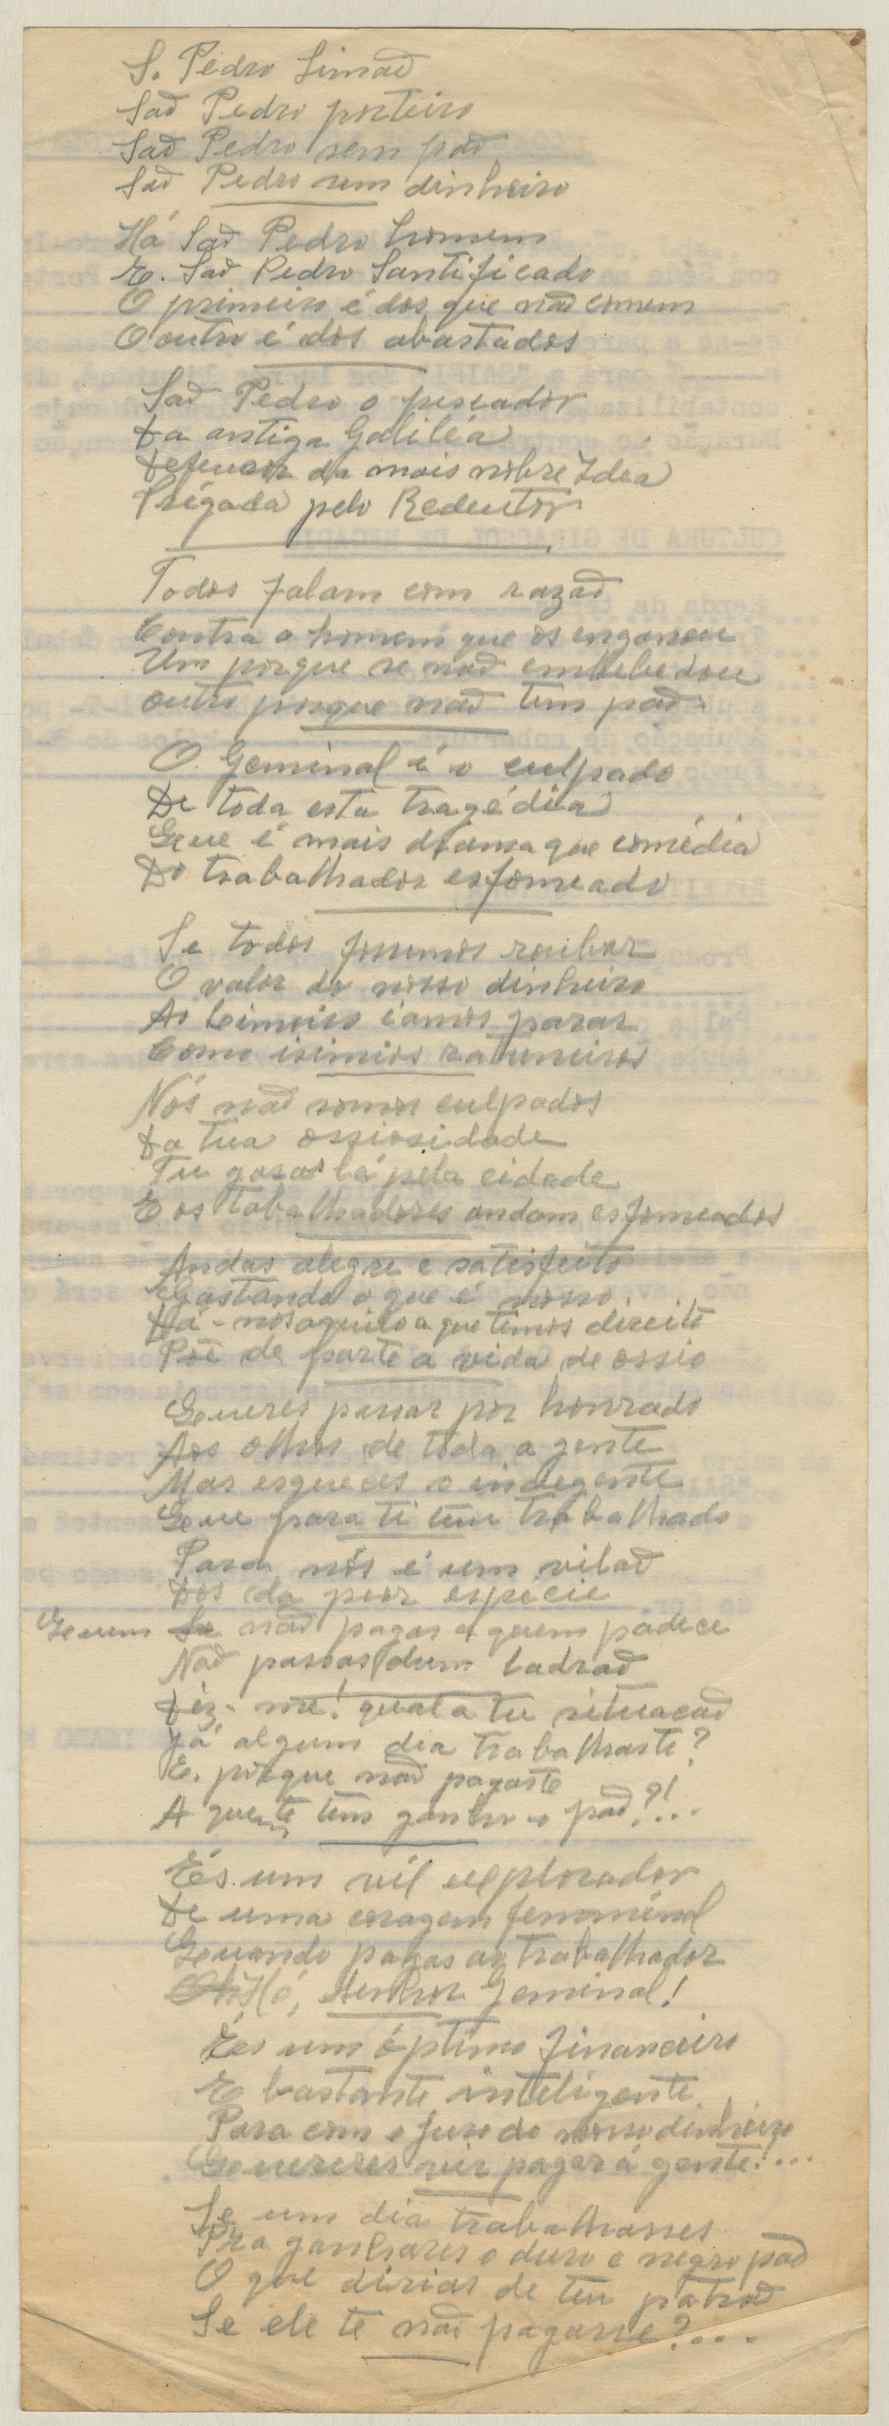 S. Pedro Simaõ
Saõ Pedro porteiro
Saõ Pedro sem paõ
Saõ Pedro sem dinheiro
Há Saõ Pedro homem
E. Saõ Pedro Santificado
O primeiro é dos que naõ comem
O outro é dos abastados
Saõ Pedro o pescador
Da antiga Galiléa
Defensor da mais nobre Idea
Prégada pelo Redentor
Todos falam com razaõ
Contra o homem que os enganou
Um porque se naõ embebedou
outro porque naõ tem paõ
O Geminal é o culpado
De toda esta tragédia
Que é mais drama que comédia
Do trabalhador esfomeado
Se todos fossemos roubar
O valor do nosso dinheiro
Ao Limoiro iamos parar
Como ratuneiros
Nós naõ somos culpados
Da tua ossiosidade
Tu gosas lá pela cidade
E os trabalhadores andam esfomeados
Andas alegre e satisfeito
Gastando o que é nosso
Dá-nos aquilo a que temos direito
Poẽ de parte a vida de ossio
Queres passar por honrado
Aos olhos de toda a gente
Mas esqueces o indegente
Que para ti tem trabalhado
Para nós é um vilaõ
Dos da pior espécie
Quem naõ pagas a quem padece
Naõ passas dum ladraõ
Diz-me! qual a tu situacaõ
Já algum dia trabalhaste?
E. porque naõ pagaste
A quem te tem ganho o paõ?!...
És um vil explorador
De uma coragem fenoménal
Quando pagas ao trabalhador
Hó, Senhor Geminal!
És um óptimo financeiro
E bastante inteligente
Para com o juro do nosso dinheiro
Quereres vir pagar á gente!...
Se um dia trabalhasses
Pra ganhares o duro e negro paõ
O que dirias de teu patraõ
Se ele te naõ pagasse?....